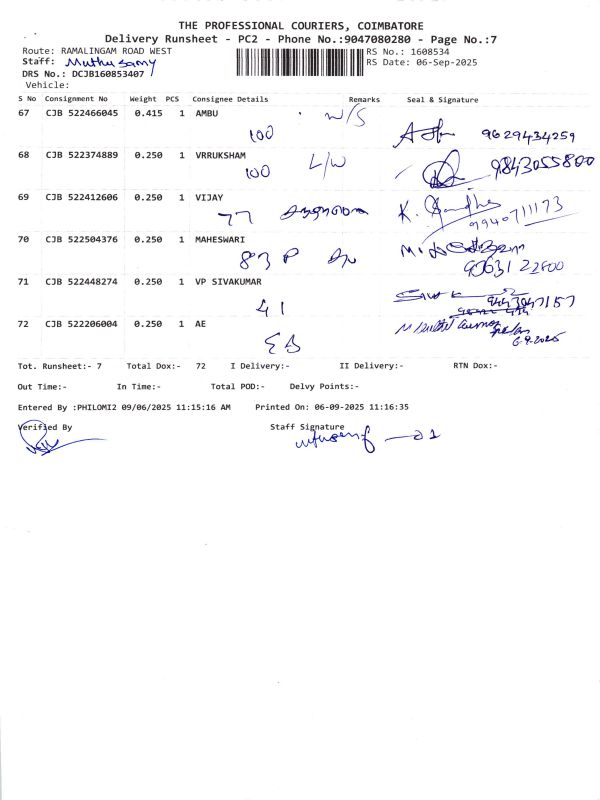 THE PROFESSIONAL COURIERS, COIMBATORE
Delivery Runsheet - PC2 - Phone No.:9047080280 - Page No.:7
Route: RAMALINGAM ROAD WEST RS No.: 1608534
Staff: Muthusamy RS Date: 06-Sep-2025
DRS No.: DCJB160853407
Vehicle:
S No Consignment No Weight PCS Consignee Details Remarks Seal & Signature
67 CJB 522466045 0.415 1 AMBU W/S
100 9629434259
68 CJB 522374889 0.250 1 VRRUKSHAM L/W
100 9843055800
69 CJB 522412606 0.250 1 VIJAY
77 9940711173
70 CJB 522504376 0.250 1 MAHESWARI
83 P
71 CJB 522448274 0.250 1 VP SIVAKUMAR
41
72 CJB 522206004 0.250 1 AE
EB 6.9.2025
Tot. Runsheet:- 7 Total Dox:- 72 I Delivery:- II Delivery:- RTN Dox:-
Out Time:- In Time:- Total POD:- Delvy Points:-
Entered By :PHILOMI2 09/06/2025 11:15:16 AM Printed On: 06-09-2025 11:16:35
Verified By Staff Signature